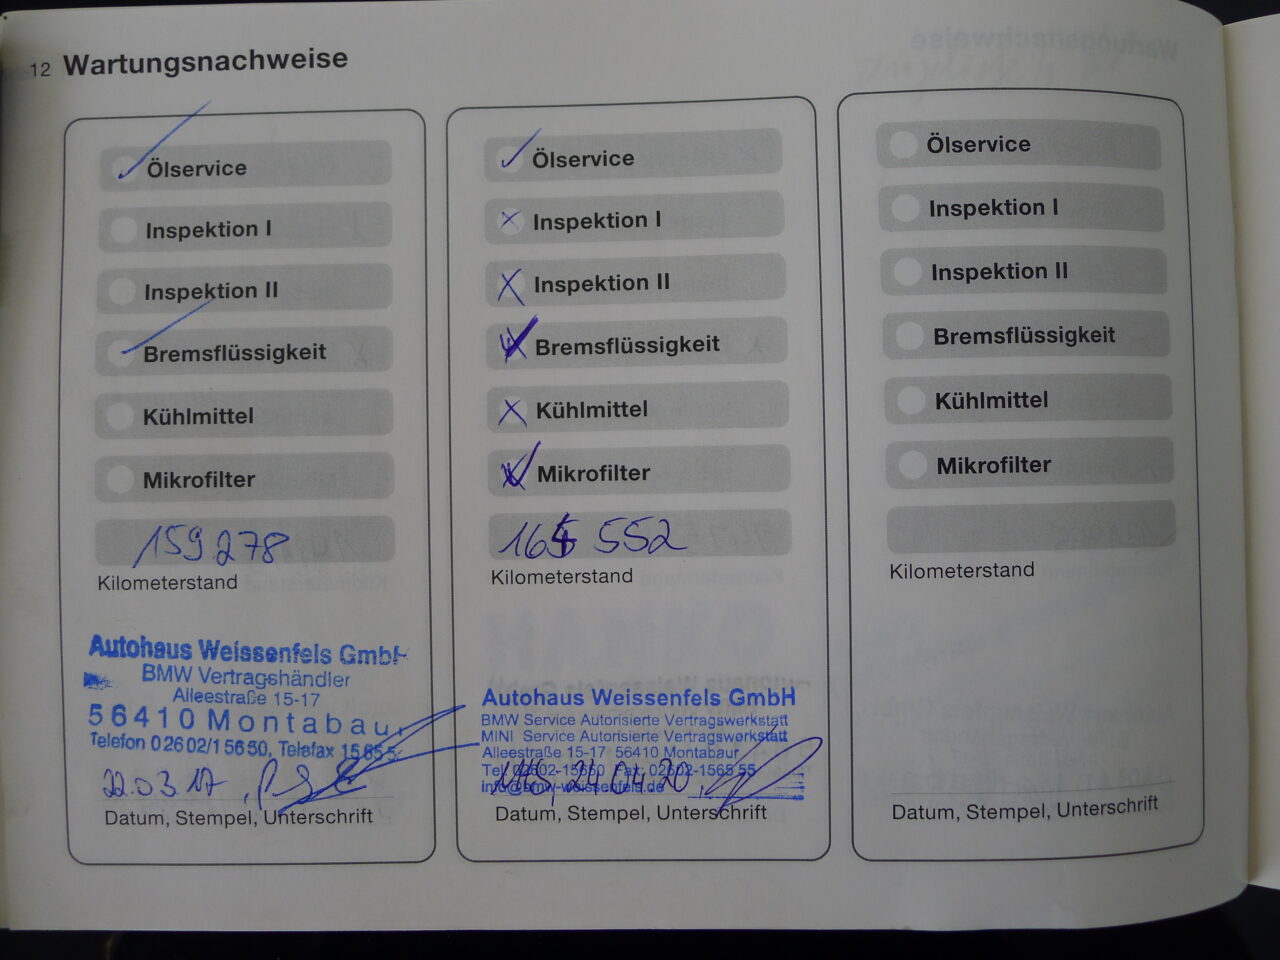 12 Wartungsnachweise
Ölservice
Inspektion I
Inspektion II
Bremsflüssigkeit
Kühlmittel
Mikrofilter
159278
Kilometerstand
Autohaus Weissenfels GmbH
BMW Vertragshändler
Alleestraße 15-17
56410 Montabaur
Telefon 02602/15650, Telefax 15655
22.03.17,
Datum, Stempel, Unterschrift
Ölservice
Inspektion I
Inspektion II
Bremsflüssigkeit
Kühlmittel
Mikrofilter
552
Kilometerstand
Autohaus Weissenfels GmbH
BMW Service Autorisierte Vertragswerkstatt
MINI Service Autorisierte Vertragswerkstatt
Alleestraße 15-17 56410 Montabaur
Tel: 02602-15650 Fax: 02602-1565 55
info@bmw-weissenfels.de
24.04.20,
Datum, Stempel, Unterschrift
Ölservice
Inspektion I
Inspektion II
Bremsflüssigkeit
Kühlmittel
Mikrofilter
Kilometerstand
Datum, Stempel, Unterschrift